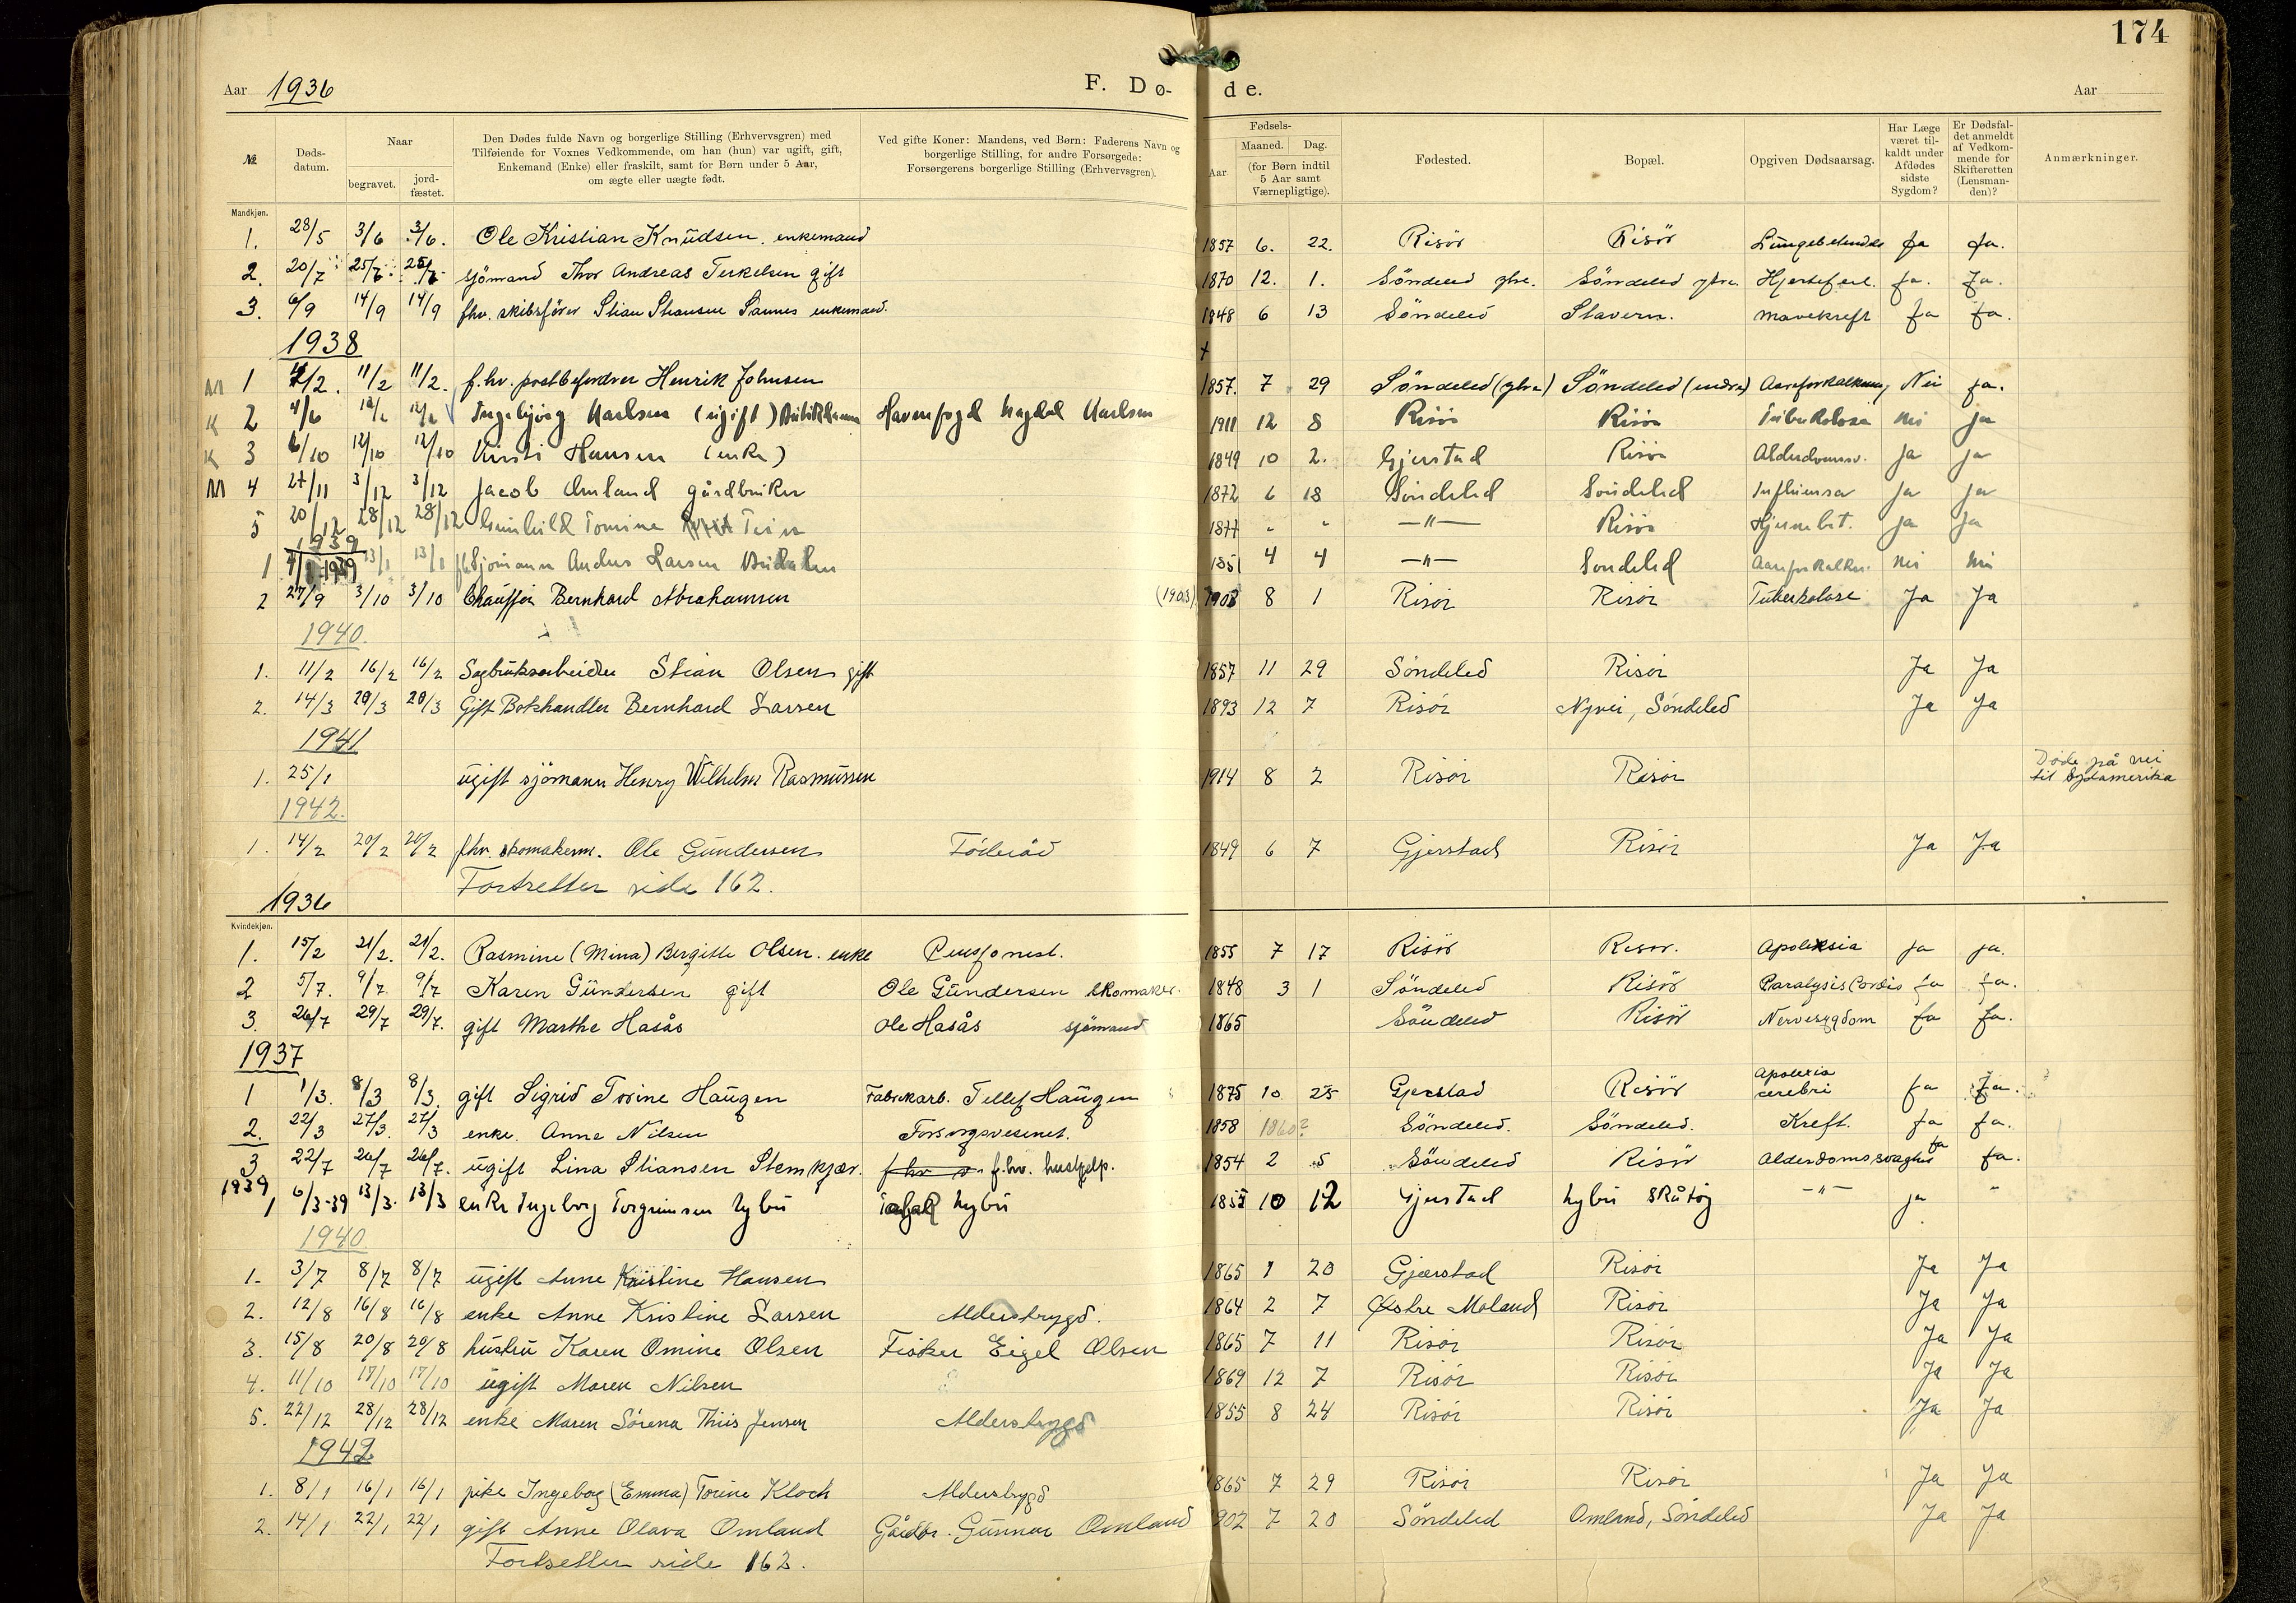 174
Aar 1936
F. Dø-
de.
Aar
№
Døds-
datum.
Naar
begravet.
jord-
fæstet.
Den Dødes fulde Navn og borgerlige Stilling (Erhvervsgren) med
Tilføiende for Voxnes Vedkommende, om han (hun) var ugift, gift,
Enkemand (Enke) eller fraskilt, samt for Børn under 5 Aar,
om ægte eller uægte født.
Ved gifte Koner: Mandens, ved Børn: Faderens Navn og
borgerlige Stilling, for andre Forsørgede:
Forsørgerens borgerlige Stilling (Erhvervsgren).
Fødsels-
Aar
Maaned. Dag.
(for Børn indtil
5 Aar samt
Værnepligtige).
Fødested.
Bopæl.
Opgiven Dødsaarsag.
Har Læge
været til-
kaldt under
Afdødes
sidste
Sygdom?
Er Dødsfal-
det anmeldt
af Vedkom-
mende for
Skifteretten
(Lensman-
den)?
Anmærkninger.
Mandkjøn.
1. 28/5 3/6 3/6. Ole Kristian Knudsen. enkemand 1857 6. 22. Risör Risör Lungebetendse Ja Ja.
2. 20/7 25/7 25/7 sjömand Thor Andreas Terkelsen gift 1870 12. 1. Söndeled ytre. Söndeled ytre. Hjertefeil. Ja. Ja.
3. 6/9 14/9 14/9 fhv. skibsförer Stian Stiansen Sannes enkemand. 1848 6 13 Söndeled Stavern. Mavekreft Ja Ja.
1938
M 1 4/2. 11/2 11/2. f.hv. postbefordrer Henrik Johnsen 1857. 7 29 Söndeled (ytre) Söndeled (indre) Aareforkalkning Nei Ja.
K 2 4/6 Ingebjörg Karlsen (ugift) Havnefogd Magdal Karlsen 1911 12 8 Risör Risör Tuberkolose nei Ja
K 3 6/10 12/10 12/10 Kirsti Hansen (enke) 1849 10 2. Gjerstad Risör Alderdomssv. Ja Ja
M 4 27/11 3/12 3/12 Jacob Omland gårdbruker 1872 6 18 Söndeled Söndeled Influensa Ja Ja
5 20/12 28/12 28/12 Gunhild Tomine 1877 - - —"— Risör Hjernebt. Ja Ja
1939
1 1939 13/1 13/1 fhv. Sjömann Anders Larsen 1851 4 4 —"— Söndeled Aareforkalkn. nei nei
2 27/9 3/10 3/10 Chaufför Bernhard Abrahamsen (1903) 1903 8 1 Risör Risör Tuberkolose Ja Ja
1940.
1. 11/2 16/2 16/2 Sagbruksarbeider Stian Olsen gift 1857 11 29 Söndeled Risör Ja Ja
2. 14/3 20/3 20/3 Gift Bokhandler Bernhard Larsen 1893 12 7 Risör Nyvei, Söndeled Ja Ja
1941
1. 25/1 ugift sjömann Henry Wilhelm Rasmussen 1914 8 2 Risör Risör Döde på vei
til Sydamerika
1942.
1. 14/2 20/2 20/2 fhv. skomakerm. Ole Gundersen Föderåd 1849 6 7 Gjerstad Risör Ja Ja
Fortsetter side 162.
1936
Kvindekjøn.
1. 15/2 21/2. 21/2. Rasmine (Mina) Bergitte Olsen. enke Pensjonist. 1855 7 17 Risör Risör. Apoleksia Ja Ja.
2 5/7. 9/7. 9/7 Karen Gundersen gift Ole Gundersen skomaker. 1848 3 1 Söndeled Risör Paralysis Cordis Ja Ja.
3. 26/7 29/7 29/7. gift Marthe Hasås Ole Hasås sjömand 1865 Söndeled Risör Nervesygdom Ja Ja.
1937
1 1/3. 8/3 8/3. gift Sigrid Torine Haugen Fabrikarb. Tellef Haugen 1875 10 25 Gjerstad Risör Apolexia
cerebri Ja Ja.
2. 22/3 27/3. 27/3 enke. Anne Nilsen Forsorgsvesenet. 1858 1860? Söndeled. Söndeled. Kreft. Ja Ja.
3 22/7 26/7 26/7. ugift Lina Stiansen Stemkjær. f.hv. hushjelp. 1854 2 5 Söndeled Risör Alderdomssvaghet Ja Ja.
1939
1 6/3-39 13/3. 13/3 enke Ingeborg Torgrimsen Nybu Nybu 1855 10 12 Gjerstad Nybu Skåtöy —"— Ja "
1940.
1. 3/7 8/7 8/7 ugift Anne Kristine Hansen 1865 1 20 Gjerstad Risör Ja Ja
2. 12/8 16/8 16/8 enke Anne Kristine Larsen Alderstrygd. 1864 2 7 Østre Moland Risör Ja Ja
3. 15/8 20/8 20/8 hustru Karen Omine Olsen Fisker Eigel Olsen 1865 7 11 Risör Risör Ja Ja
4. 11/10 17/10 17/10 ugift Maren Nilsen 1869 12 7 Risör Risör Ja Ja
5. 22/12 28/12 28/12 enke Maren Sörena Thiis Jensen Alderstrygd 1855 8 24 Risör Risör Ja Ja
1942
1. 8/1 16/1 16/1 pike Ingeborg (Emma) Torine Kloch Alderstrygd 1865 7 29 Risör Risör Ja Ja
2. 14/1 22/1 22/1 gift Anne Olava Omland Gårdbr. Gunnar Omland 902 7 20 Söndeled Omland, Söndeled Ja Ja
Fortsetter side 162.